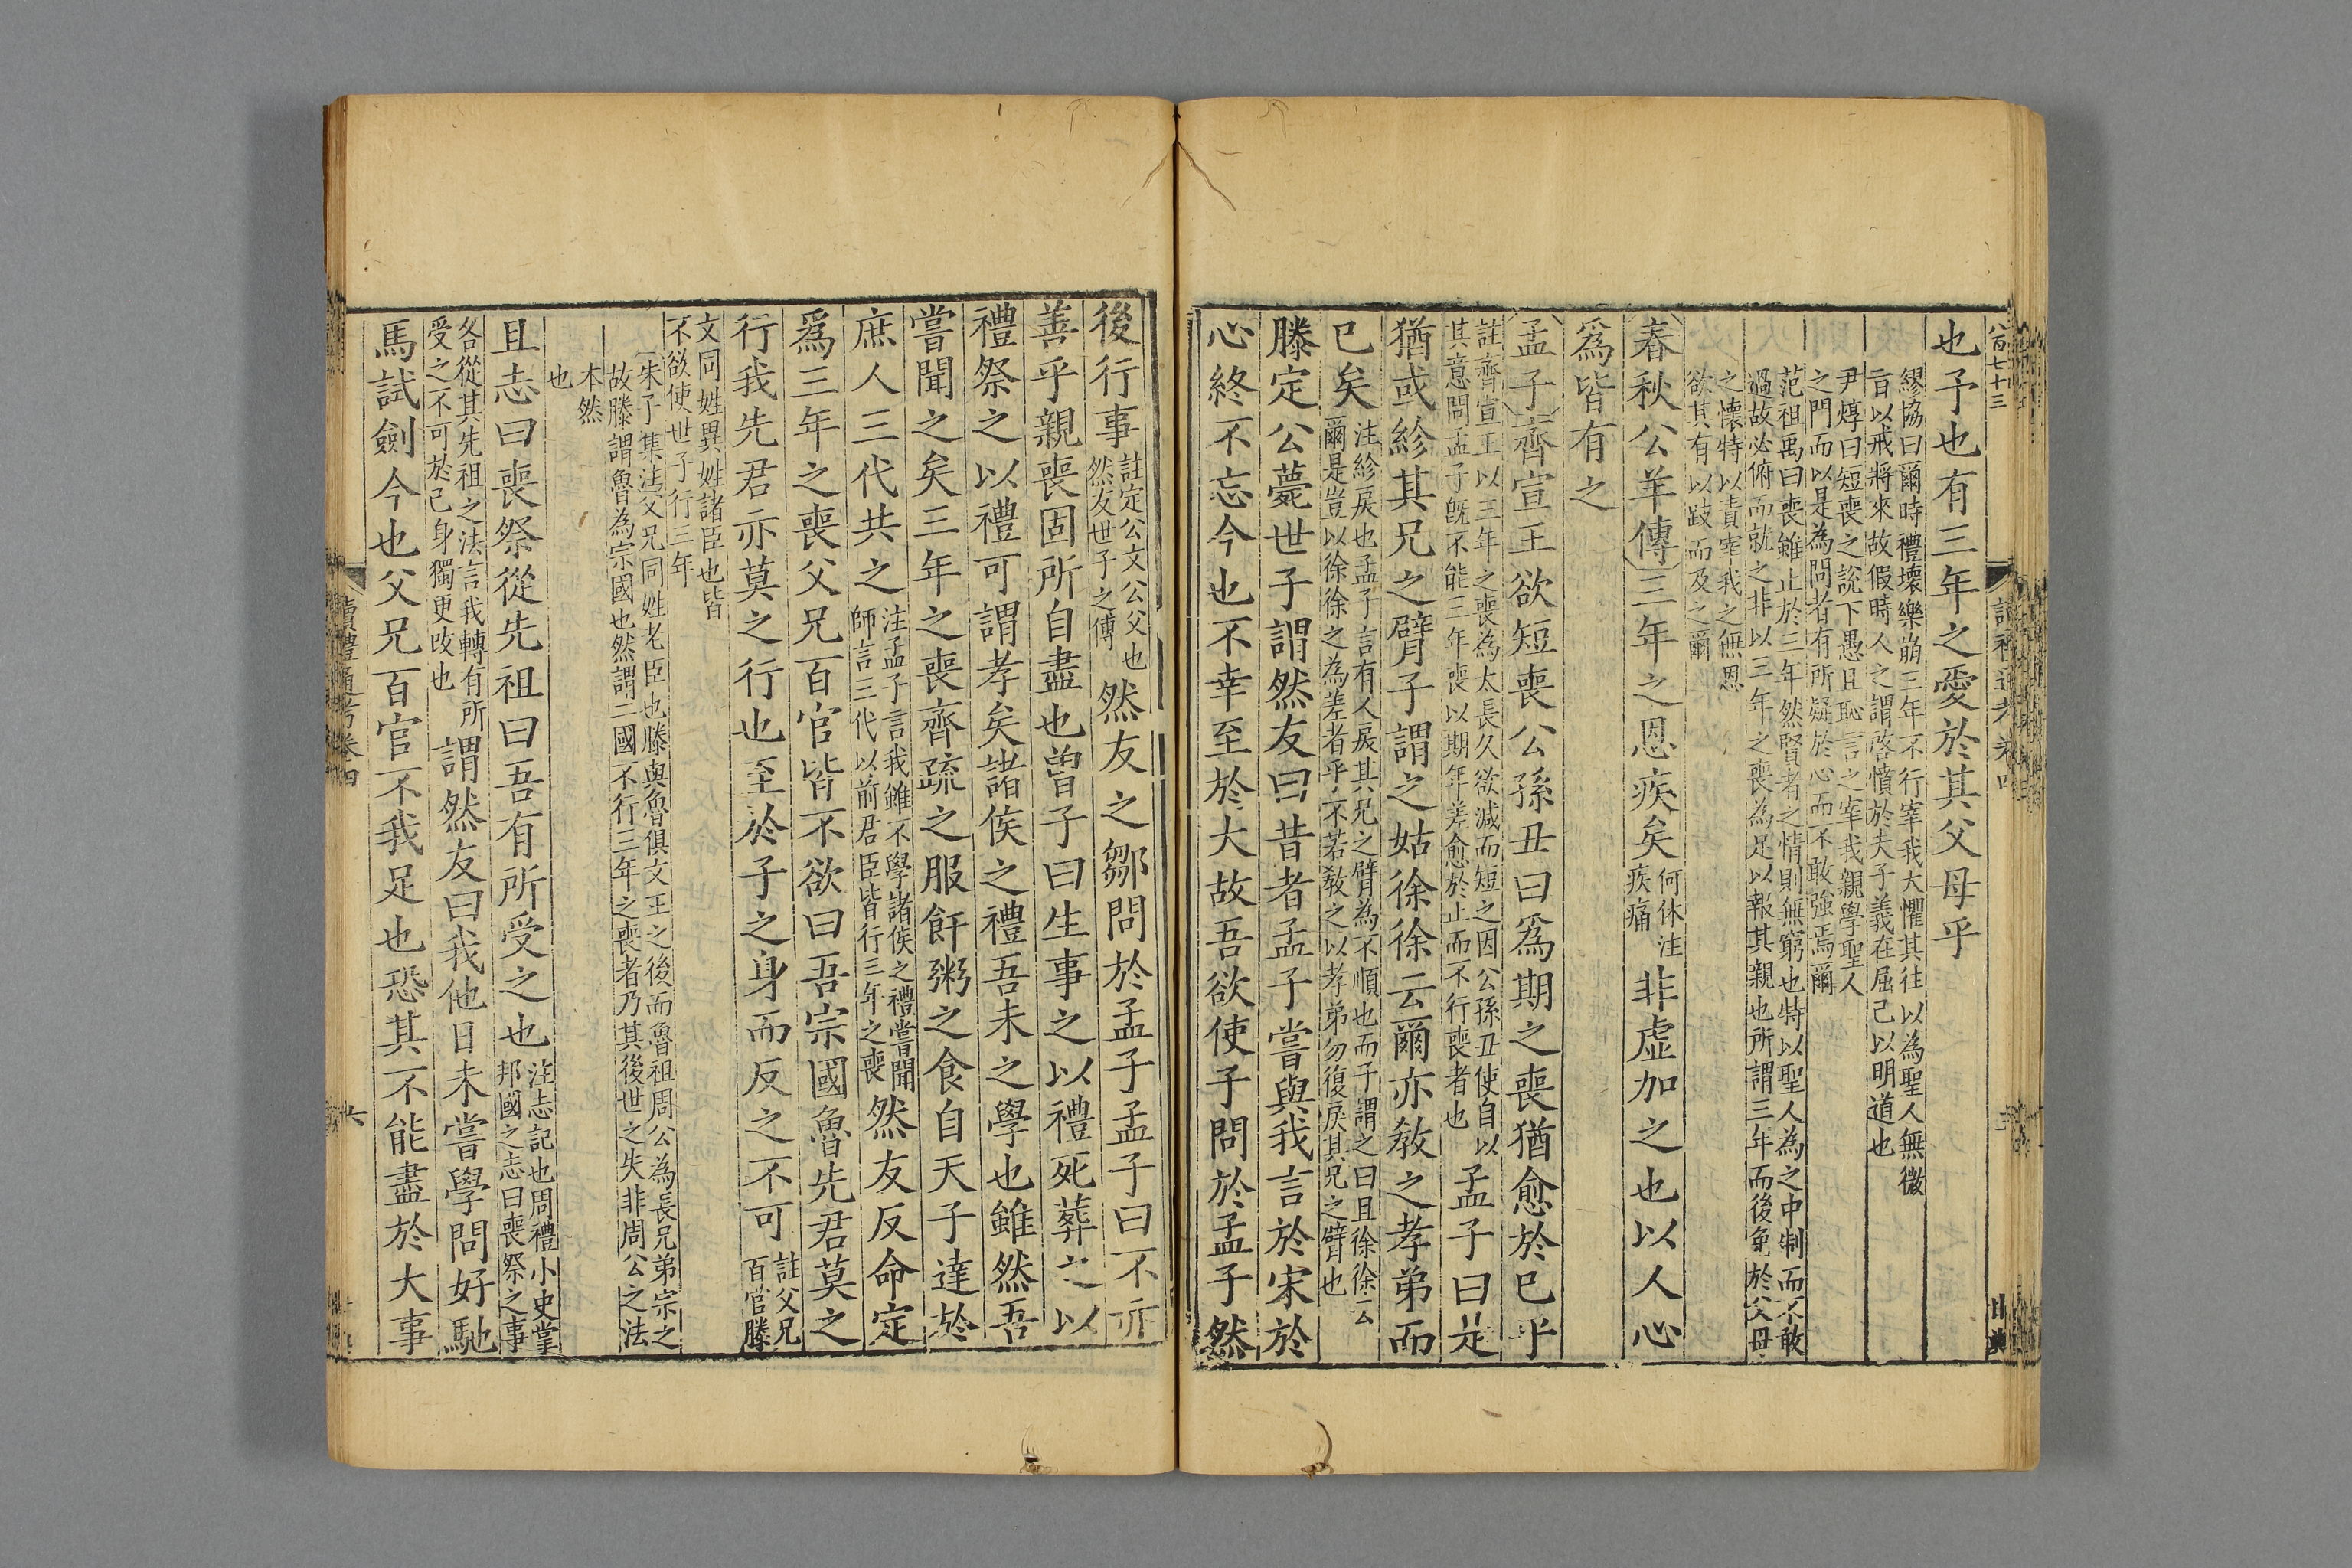 八百七十三
讀禮通考卷四
也予也有三年之愛於其父母乎
繆協曰爾時禮壞樂崩三年不行宰我大懼其往以為聖人無微
旨以戒將來故假時人之謂啓憤於夫子義在屈己以明道也
尹焞曰短喪之說下愚且恥言之宰我親學聖人
之門而以是為問者有所疑於心而不敢強焉爾
范祖禹曰喪雖止於三年然賢者之情則無窮也特以聖人為之中制而不敢
過故必俯而就之非以三年之喪為足以報其親也所謂三年而後免於父母
之懷特以責宰我之無恩
欲其有以跂而及之爾
春秋公羊傳三年之恩疾矣何休注
疾痛非虛加之也以人心
爲皆有之
孟子齊宣王欲短喪公孫丑曰爲期之喪猶愈於已乎
註齊宣王以三年之喪為太長久欲減而短之因公孫丑使自以
其意問孟子既不能三年喪以期年差愈於止而不行喪者也孟子曰是
猶或紾其兄之臂子謂之姑徐徐云爾亦敎之孝弟而
已矣注紾戾也孟子言有人戾其兄之臂為不順也而子謂之曰且徐徐云
爾是豈以徐徐之為差者乎不若敎之以孝弟勿復戾其兄之臂也
滕定公薨世子謂然友曰昔者孟子嘗與我言於宋於
心終不忘今也不幸至於大故吾欲使子問於孟子然
後行事註定公文公父也
然友世子之傅然友之鄒問於孟子孟子曰不亦
善乎親喪固所自盡也曾子曰生事之以禮死葬之以
禮祭之以禮可謂孝矣諸侯之禮吾未之學也雖然吾
嘗聞之矣三年之喪齊疏之服飦粥之食自天子達於
庶人三代共之注孟子言我雖不學諸侯之禮嘗聞
師言三代以前君臣皆行三年之喪然友反命定
爲三年之喪父兄百官皆不欲曰吾宗國魯先君莫之
行我先君亦莫之行也至於子之身而反之不可註父兄
百官滕
文同姓異姓諸臣也皆
不欲使世子行三年
朱子集注父兄同姓老臣也滕與魯俱文王之後而魯祖周公為長兄弟宗之
故滕謂魯為宗國也然謂二國不行三年之喪者乃其後世之失非周公之法
本然
也
且志曰喪祭從先祖曰吾有所受之也注志記也周禮小史掌
邦國之志曰喪祭之事
各從其先祖之法言我轉有所
受之不可於己身獨更改也謂然友曰我他日未嘗學問好馳
馬試劍今也父兄百官不我足也恐其不能盡於大事
讀禮通考卷四
六